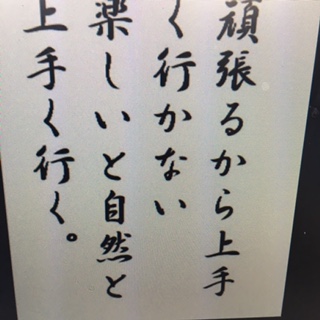 頑張るから上手
く行かない
楽しいと自然と
上手く行く。